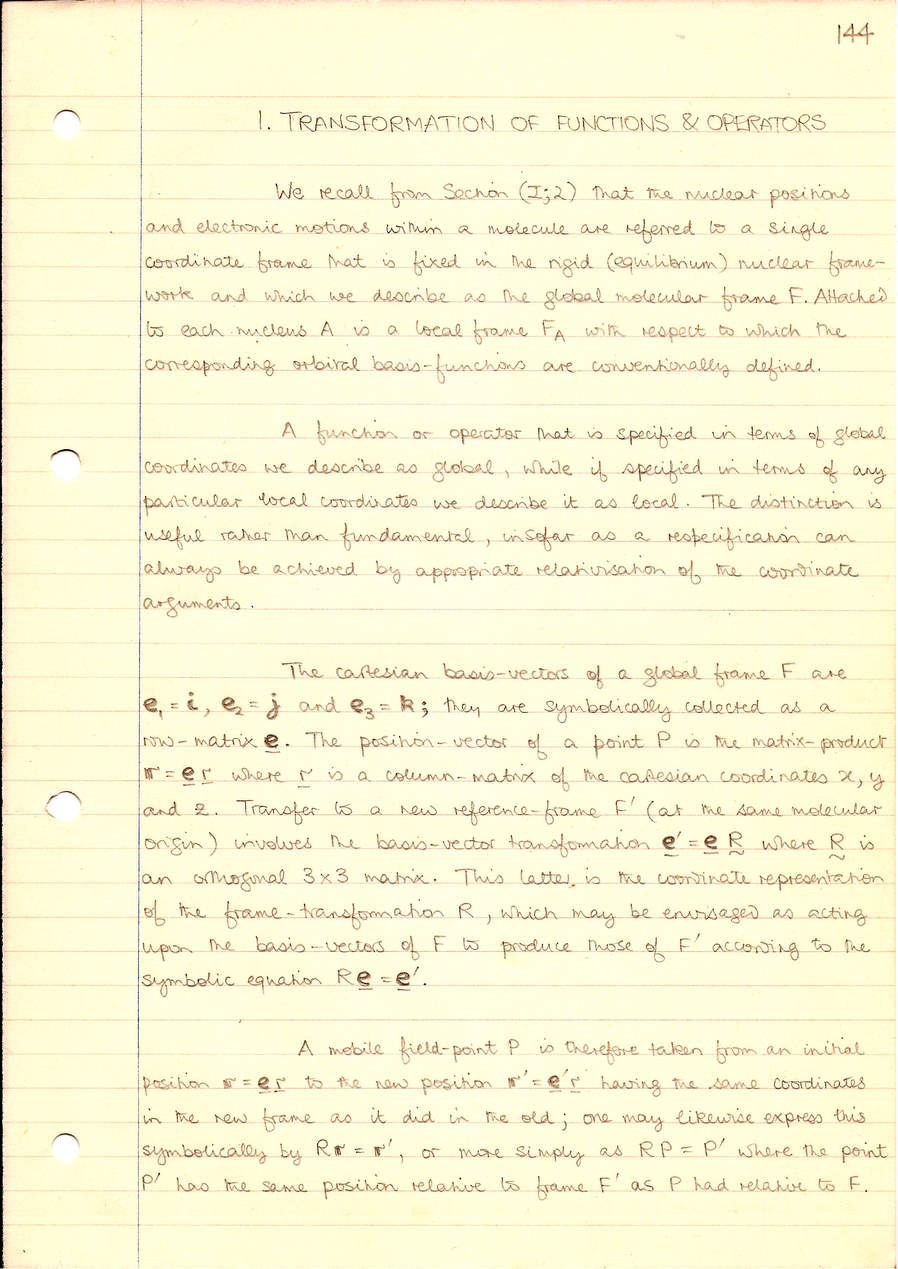 144
1. TRANSFORMATION OF FUNCTIONS & OPERATORS
We recall from Section (I;2) that the nuclear positions
and electronic motions within a molecule are referred to a single
coordinate frame that is fixed in the rigid (equilibrium) nuclear frame-
work and which we describe as the global molecular frame F. Attached
to each nucleus A is a local frame F_A with respect to which the
corresponding orbital basis-functions are conventionally defined.
A function or operator that is specified in terms of global
coordinates we describe as global, while if specified in terms of any
particular local coordinates we describe it as local. The distinction is
useful rather than fundamental, insofar as a respecification can
always be achieved by appropriate relativisation of the coordinate
arguments.
The cartesian basis-vectors of a global frame F are
e₁ = i, e₂ = j and e₃ = k; they are symbolically collected as a
row-matrix e. The position-vector of a point P is the matrix-product
r = e r where r is a column-matrix of the cartesian coordinates x, y
and z. Transfer to a new reference-frame F′ (at the same molecular
origin) involves the basis-vector transformation e′ = e R where R is
an orthogonal 3×3 matrix. This latter is the coordinate representation
of the frame-transformation R, which may be envisaged as acting
upon the basis-vectors of F to produce those of F′ according to the
symbolic equation Re = e′.
A mobile field-point P is therefore taken from an initial
position r = e r to the new position r′ = e′r having the same coordinates
in the new frame as it did in the old; one may likewise express this
symbolically by Rr = r′, or more simply as RP = P′ where the point
P′ has the same position relative to frame F′ as P had relative to F.